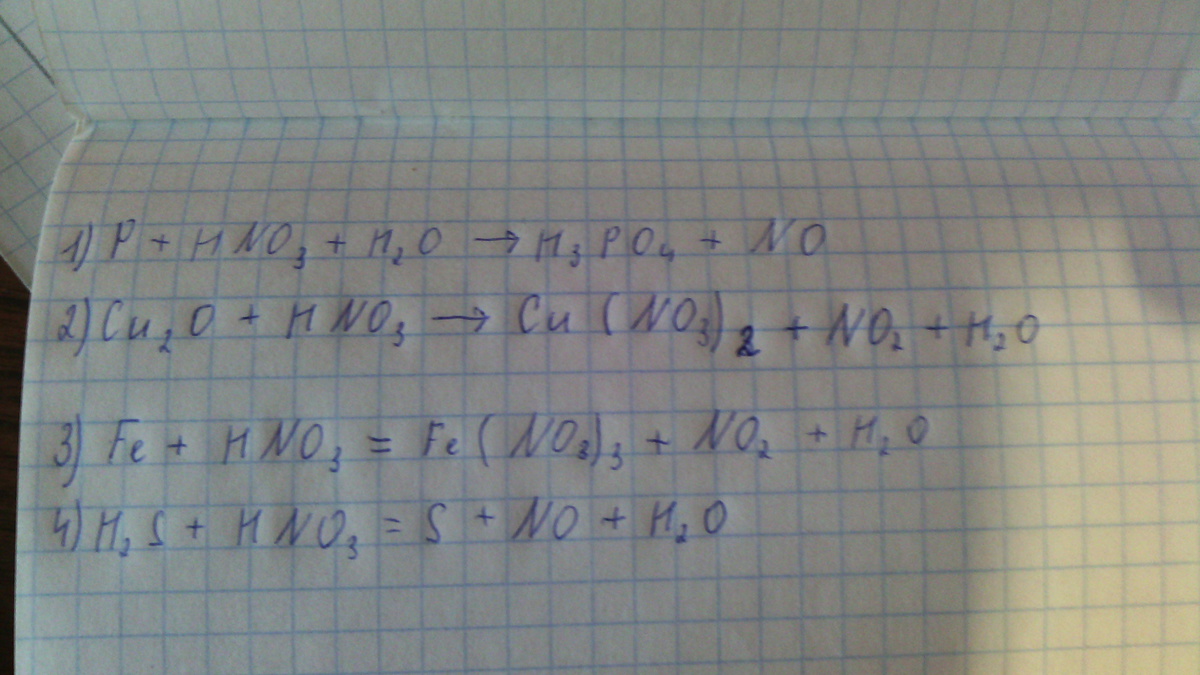 1) P + HNO₃ + H₂O → H₃PO₄ + NO
2) Cu₂O + HNO₃ → Cu(NO₃)₂ + NO₂ + H₂O
3) Fe + HNO₃ = Fe(NO₃)₃ + NO₂ + H₂O
4) H₂S + HNO₃ = S + NO + H₂O